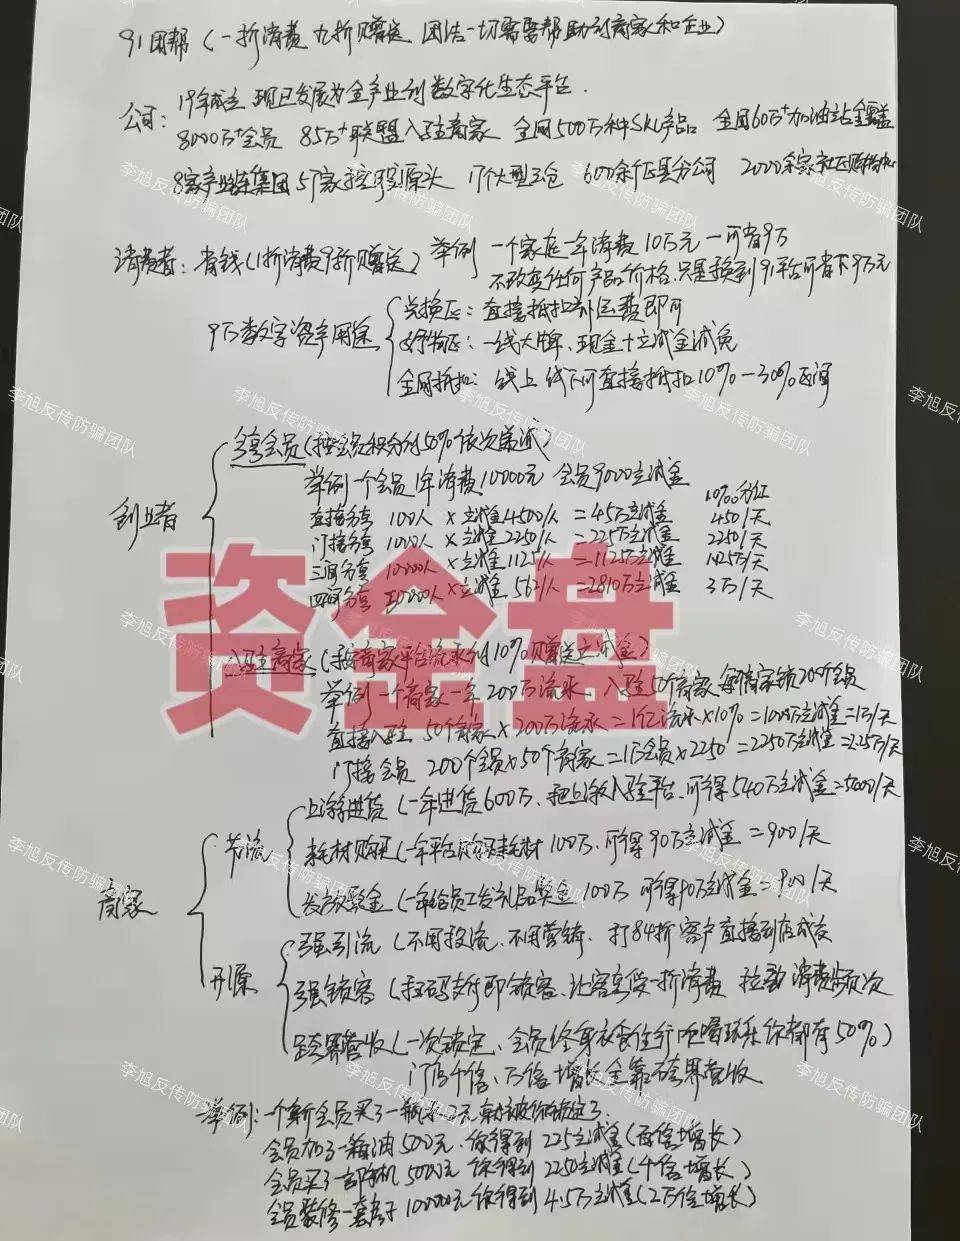 91团帮（一折消费 九折赠送 团结一切需要帮助的商家和企业）
公司：19年成立 现已发展为全产业的数字化生态平台.
8000万+会员 85万+联盟入驻商家 全网500万种SKU产品 全国60万+加油站全覆盖
8家产业链集团 57家控股源头 17个大型云仓 600余个区县分公司 2000余家社区购物中心
消费者：省钱（1折消费9折赠送）举例 一个家庭一年消费10万元一可省9万
不改变任何产品价格.只是换到91平台可省下9万元
9万数字资产用途
兑换区：直接抵扣补运费即可
好物区：一线大牌、现金+立减金减免
全网抵扣：线上 线下可直接抵扣10%—30%区间
创业者
分享会员（按会员积分的50%依次递减）
举例 一个会员1年消费10000元 会员9000立减金
10‱分红
直接分享 100人 × 立减金4500/人 = 45万立减金 450/天
间接分享 1000人 × 立减金2250/人 = 225万立减金 2250/天
三间分享 10000人 × 立减金1125/人 = 1125万立减金 1.125万/天
四间分享 50000人 × 立减金562/人 = 2810万立减金 3万/天
入驻商家（按商家平台流水的10%赠送立减金）
举例 一个商家一年200万流水、入驻50个商家 每商家锁200个会员
直接入驻 50个商家 × 200万流水 = 1亿流水×10% = 1000万立减金 = 1万/天
间接会员 200个会员×50个商家 = 1万会员×2250 = 2250万立减金 = 2.25万/天
商家
节流
上游进货（一年进货600万、把上游入驻平台、可得540万立减金=5400/天
耗材购买（一年平台购买耗材100万.可得90万立减金 = 900/天
发放奖金（一年给员工发礼品奖金100万 可得90万立减金 = 900/天
开源
强引流（不用投流、不用营销、打84折 客户直接到店成交
强锁客（扫码支付即锁客、让客享受一折消费 拉动消费频次
跨界营收（一次锁定、会员终身衣食住行吃喝玩乐你都有50%）
门店千倍、万倍增长全靠跨界营收
举例：一个新会员买了一瓶水2元 就被你锁定了.
会员加了一箱油500元.你得到225立减金（百倍增长）
会员买了一部手机5000元 你得到2250立减金（千倍增长）
会员装修一套房子100000元你得到4.5万立减金（2万倍增长）
资金盘
李旭反传防骗团队